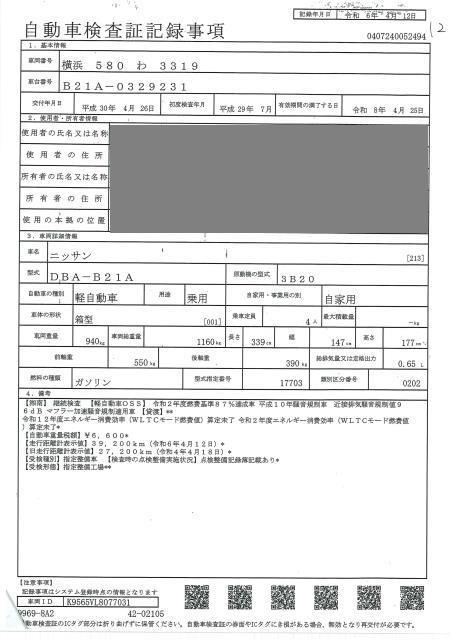 記録年月日 令和 6年 4月 12日
12
自動車検査証記録事項
0407240052494
1．基本情報
車両番号 横浜 580 わ 3319
車台番号 B21A-0329231
交付年月日 平成 30年 4月 26日 初度検査年月 平成 29年 7月 有効期間の満了する日 令和 8年 4月 25日
2．使用者・所有者情報
使用者の氏名又は名称
使用者の住所
所有者の氏名又は名称
所有者の住所
使用の本拠の位置
3．車両詳細情報
車名 ニッサン [213]
型式 DBA-B21A 原動機の型式 3B20
自動車の種別 軽自動車 用途 乗用 自家用・事業用の別 自家用
車体の形状 箱型 [001] 乗車定員 4人 最大積載量 -kg
車両重量 940kg 車両総重量 1160kg 長さ 339cm 幅 147cm 高さ 177cm
前軸重 550kg 後軸重 390kg 総排気量又は定格出力 0.65 L
燃料の種類 ガソリン 型式指定番号 17703 類別区分番号 0202
4．備考
継続検査 【軽自動車OSS】 令和2年度燃費基準87％達成車 平成10年騒音規制車 近接排気騒音規制値9
6dB マフラー加速騒音規制適用車 【貸渡】**
令和12年度エネルギー消費効率（WLTCモード燃費値）算定未了 令和2年度エネルギー消費効率（WLTCモード燃費値
）算定未了*
【自動車重量税額】¥6,600*
【走行距離計表示値】39,200km（令和6年4月12日）*
【旧走行距離計表示値】27,200km（令和4年4月18日）*
【受検種別】指定整備車 【検査時の点検整備実施状況】点検整備記録簿記載あり*
【受検形態】指定整備工場**
【注意事項】
記録事項はシステム登録時点の情報となります
車両ID K9565VL8077031
9969-8A2 42-02105
自動車検査証のICタグ部分は折り曲げずに保管ください。自動車検査証の券面やICタグに き損がある場合、無効となり再交付が必要です。